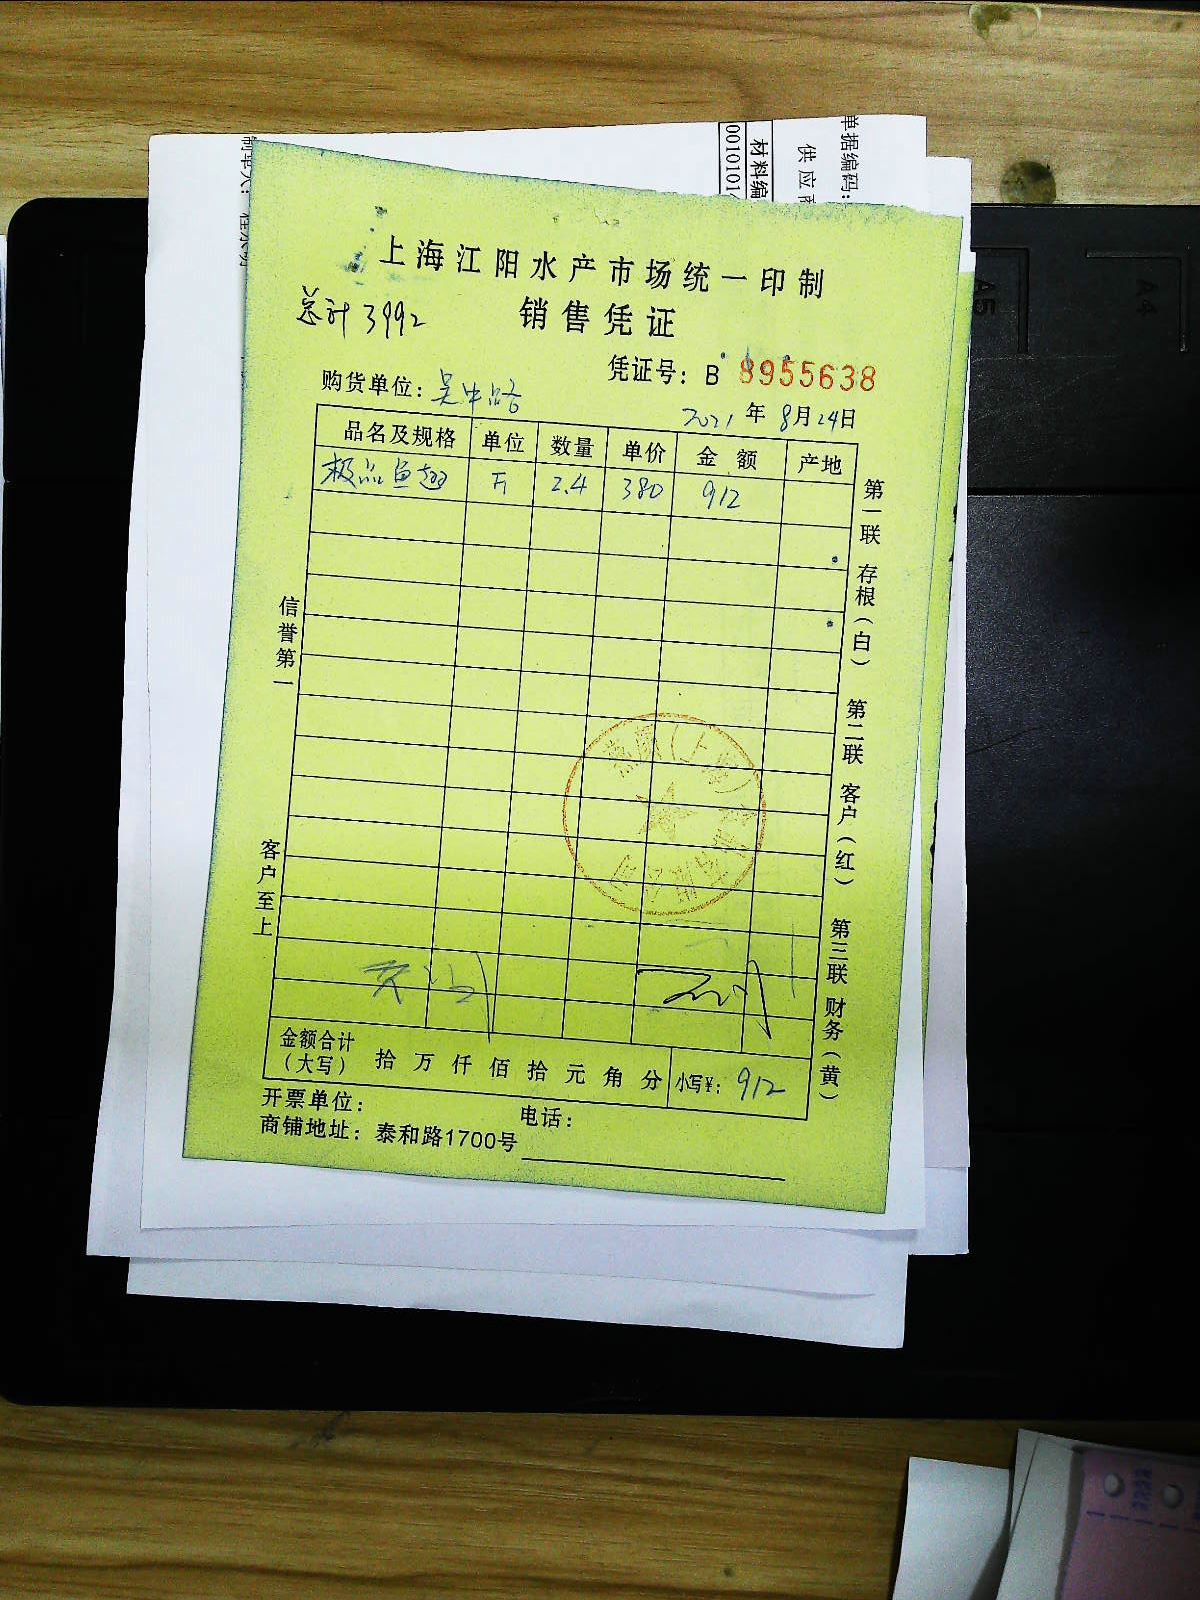 单据编码:
供应商
材料编
制单人:
A5
A4
上海江阳水产市场统一印制
总计3992
销售凭证
凭证号: B 8955638
购货单位: 吴中路
2021年8月24日
品名及规格 单位 数量 单价 金额 产地
极品鱼翅 斤 2.4 380 912
第一联 存根(白) 第二联 客户(红) 第三联 财务(黄)
信誉第一
客户至上
金额合计(大写) 拾 万 仟 佰 拾 元 角 分 小写¥: 912
开票单位: 电话:
商铺地址: 泰和路1700号